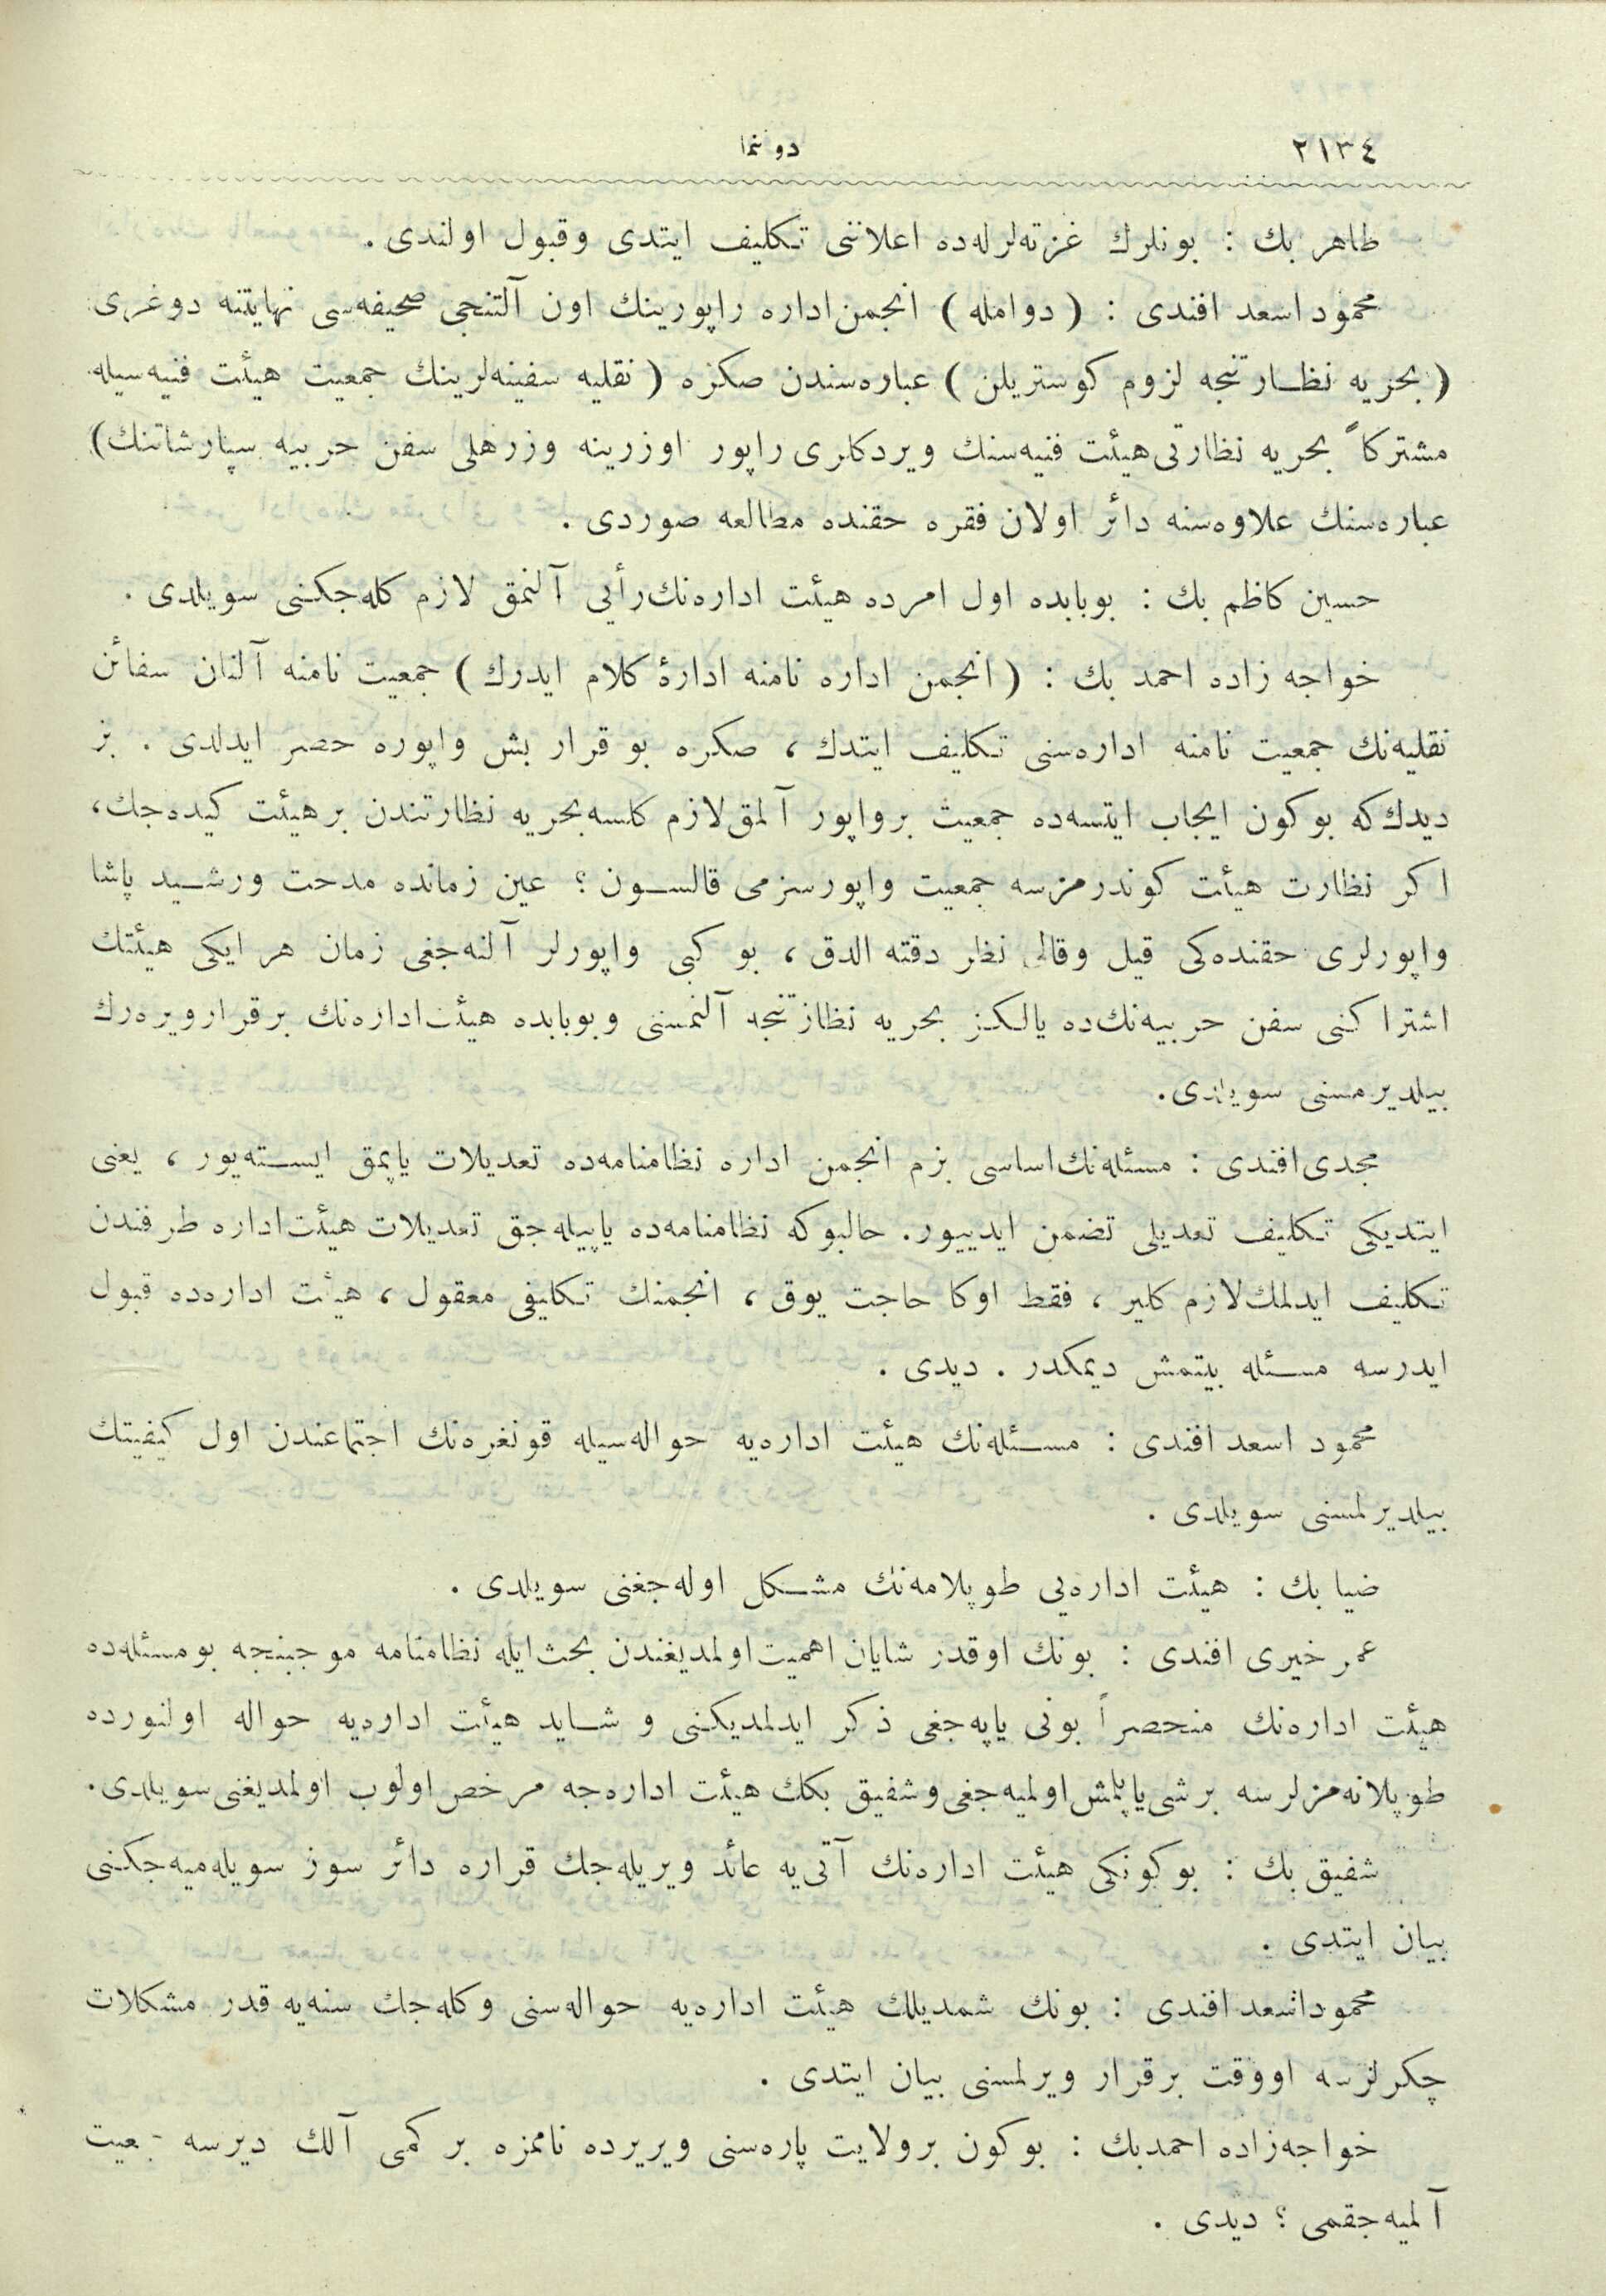 ٢١٣٤ دونما
طاهر بك : بونلرك غزته‌لرله‌ده اعلاننی تكلیف ایتدی وقبول اولندی .
محمود اسعد افندی : ( دوامله ) انجمن اداره راپورینك اون آلتنجی صحیفه‌سی نهایتنه دوغری
( بحریه نظارتنجه لزوم كوستریلن ) عباره‌سندن صكره ( نقلیه سفینه‌لرینك جمعیت هیئت فنیه‌سیله
مشتركاً بحریه نظارتی هیئت فنیه‌سنك ویردكلری راپور اوزرینه وزرهلی سفن حربیه سپارشاتنك)
عباره‌سنك علاوه‌سنه دائر اولان فقره حقنده مطالعه صوردی .
حسین كاظم بك : بوبابده اول امرده هیئت اداره‌نك رأیی آلنمق لازم كله‌جكنی سویلدی .
خواجه زاده احمد بك : ( انجمن اداره نامنه ادارهٔ كلام ایدرك ) جمعیت نامنه آلنان سفائن
نقلیه‌نك جمعیت نامنه اداره‌سنی تكلیف ایتدك ، صكره بو قرار بش واپوره حصر ایدلدی . بز
دیدك كه بوكون ایجاب ایتسه‌ده جمعیت برواپور آلمق لازم كلسه بحریه نظارتندن برهیئت كیده‌جك،
اكر نظارت هیئت كوندرمزسه جمعیت واپورسزمی قالسون ؟ عین زمانده مدحت ورشید پاشا
واپورلری حقنده‌كی قیل وقالی نظر دقته الدق ، بو كبی واپورلر آلنه‌جغی زمان هر ایكی هیئتك
اشتراكنی سفن حربیه‌نك‌ده یالكز بحریه نظارتنجه آلنمسنی وبوبابده هیئت اداره‌نك برقرارویره‌رك
بیلدیرمسنی سویلدی.
مجدی افندی : مسئله‌نك اساسی بزم انجمن اداره نظامنامه‌ده تعدیلات یاپمق ایسته‌یور ، یعنی
ایتدیكی تكلیف تعدیلی تضمن ایدییور. حالبوكه نظامنامه‌ده یاپیله‌جق تعدیلات هیئت اداره طرفندن
تكلیف ایدلمك لازم كلیر ، فقط اوكا حاجت یوق ، انجمنك تكلیفی معقول ، هیئت اداره‌ده قبول
ایدرسه مسئله بیتمش دیمكدر . دیدی .
محمود اسعد افندی : مسئله‌نك هیئت اداره‌یه حواله‌سیله قونغره‌نك اجتماعندن اول كیفیتك
بیلدیرلمسنی سویلدی .
ضیا بك : هیئت اداره‌یی طوپلامه‌نك مشكل اوله‌جغنی سویلدی .
عمر خیری افندی : بونك اوقدر شایان اهمیت اولمدیغندن بحث ایله نظامنامه موجبنجه بومسئله‌ده
هیئت اداره‌نك منحصراً بونی یاپه‌جغی ذكر ایدلمدیكنی و شاید هیئت اداره‌یه حواله اولنورده
طوپلانه‌مزلرسه برشی یاپلمش اولمیه‌جغی وشفیق بكك هیئت اداره‌جه مرخص اولوب اولمدیغنی سویلدی.
شفیق بك : بوكونكی هیئت اداره‌نك آتی‌یه عائد ویریله‌جك قراره دائر سوز سویله‌میه‌جكنی
بیان ایتدی .
محمود اسعد افندی : بونك شمدیلك هیئت اداره‌یه حواله‌سنی وكله‌جك سنه‌یه قدر مشكلات
چكرلرسه اووقت برقرار ویرلمسنی بیان ایتدی .
خواجه‌زاده احمدبك : بوكون برولایت پاره‌سنی ویریرده نامزه بر كمی آلك دیرسه جمعیت
آلمیه‌جقمی ؟ دیدی .